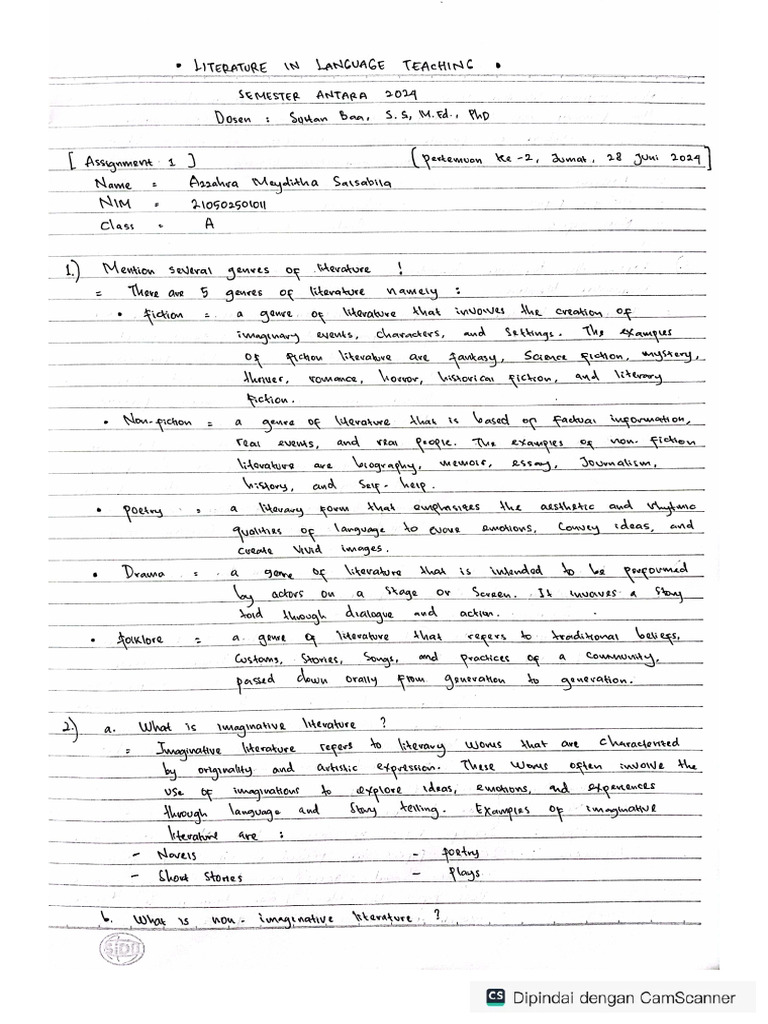 • LITERATURE IN LANGUAGE TEACHING •
SEMESTER ANTARA 2024
Dosen : Sultan Baa, S.S, M.Ed., PhD
[ Assignment 1 ] ( Pertemuan ke-2, Jumat, 28 Juni 2024 ]
Name = Azzahra Meyditha Salsabila
NIM = 210502501011
Class = A
1.) Mention several genres of literature !
= There are 5 genres of literature namely :
• fiction = a genre of literature that involves the creation of
imaginary events, characters, and settings. The examples
of fiction literature are fantasy, Science fiction, mystery,
thriller, romance, horror, historical fiction, and literary
fiction.
• Non-fiction = a genre of literature that is based of factual information,
real events, and real people. The examples of non-fiction
literature are biography, memoir, essay, Journalism,
history, and self-help.
• Poetry = a literary form that emphasizes the aesthetic and rhytmic
qualities of language to evove emotions, convey ideas, and
create vivid images.
• Drama = a genre of literature that is intended to be performed
by actors on a stage or screen. It involves a story
told through dialogue and action.
• folklore = a genre of literature that refers to traditional beliefs,
customs, stories, songs, and practices of a community,
passed down orally from generation to generation.
2.) a. What is imaginative literature ?
= Imaginative literature refers to literary works that are characterized
by originality and artistic expression. These works often involve the
use of imaginations to explore ideas, emotions, and experiences
through language and story telling. Examples of imaginative
literature are :
- Novels - Poetry
- Short Stories - Plays
b. What is non-imaginative literature ?
SIDU
CS Dipindai dengan CamScanner